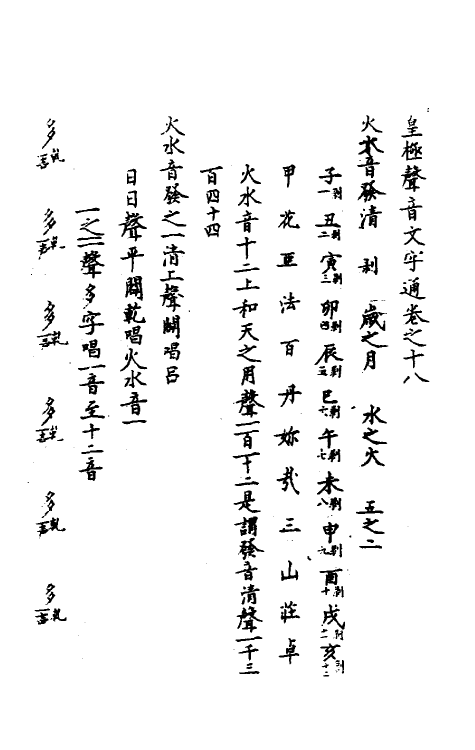 皇極聲音文字通卷之十八
火水音發清 剝 歲之月 水之火 五之二
子一剝 丑二剝 寅三剝 卯四剝 辰五剝 巳六剝 午七剝 未八剝 申九剝 酉十剝 戌十一剝 亥十二剝
甲 花 亞 法 百 丹 妳 㢤 三 山 莊 卓
火水音十二上和天之用聲一百一十二是謂發音清聲一千三
百四十四
火水音發之一清上聲闢唱呂
日日聲平闢乾唱火水音一
一之一聲多字唱一音至十二音
多 多 多 多 多 多